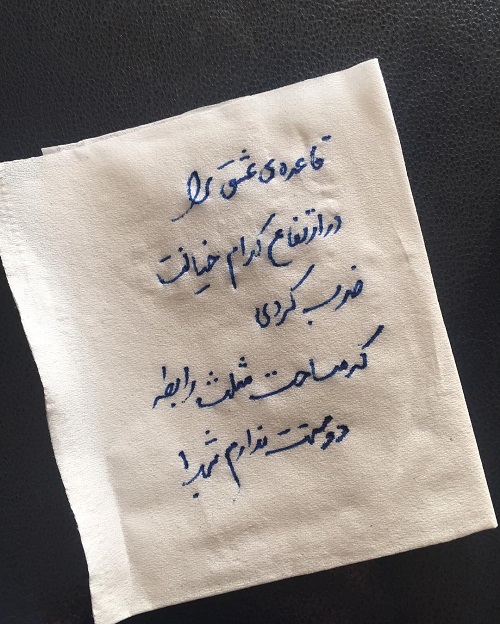 قاعده‌ی عشق را
در ارتفاع کدام خیانت
ضرب کردی
که مساحت مثلث رابطه
دوستت ندارم شد!